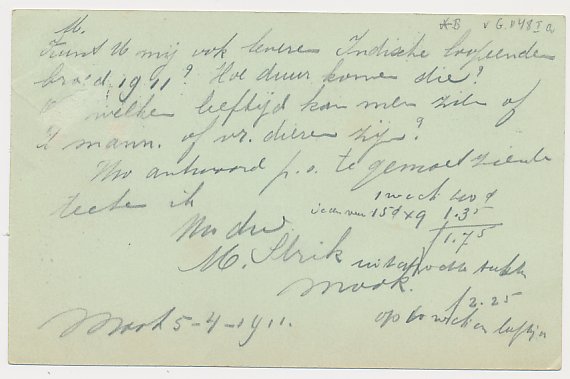 M.
Kunt U mij ook levere Indische loopeende
broed 1911? Hoe duur komen die?
welke leeftijd kan men zien of
't mann. of vr. dieren zijn?
Uw antwoord p.o. te gemoet ziende
teeken ik
Uw dw
M. Strik
Mook.
Mook 5-4-1911.
15 ct x 9 1.35
1.75
2.25
op